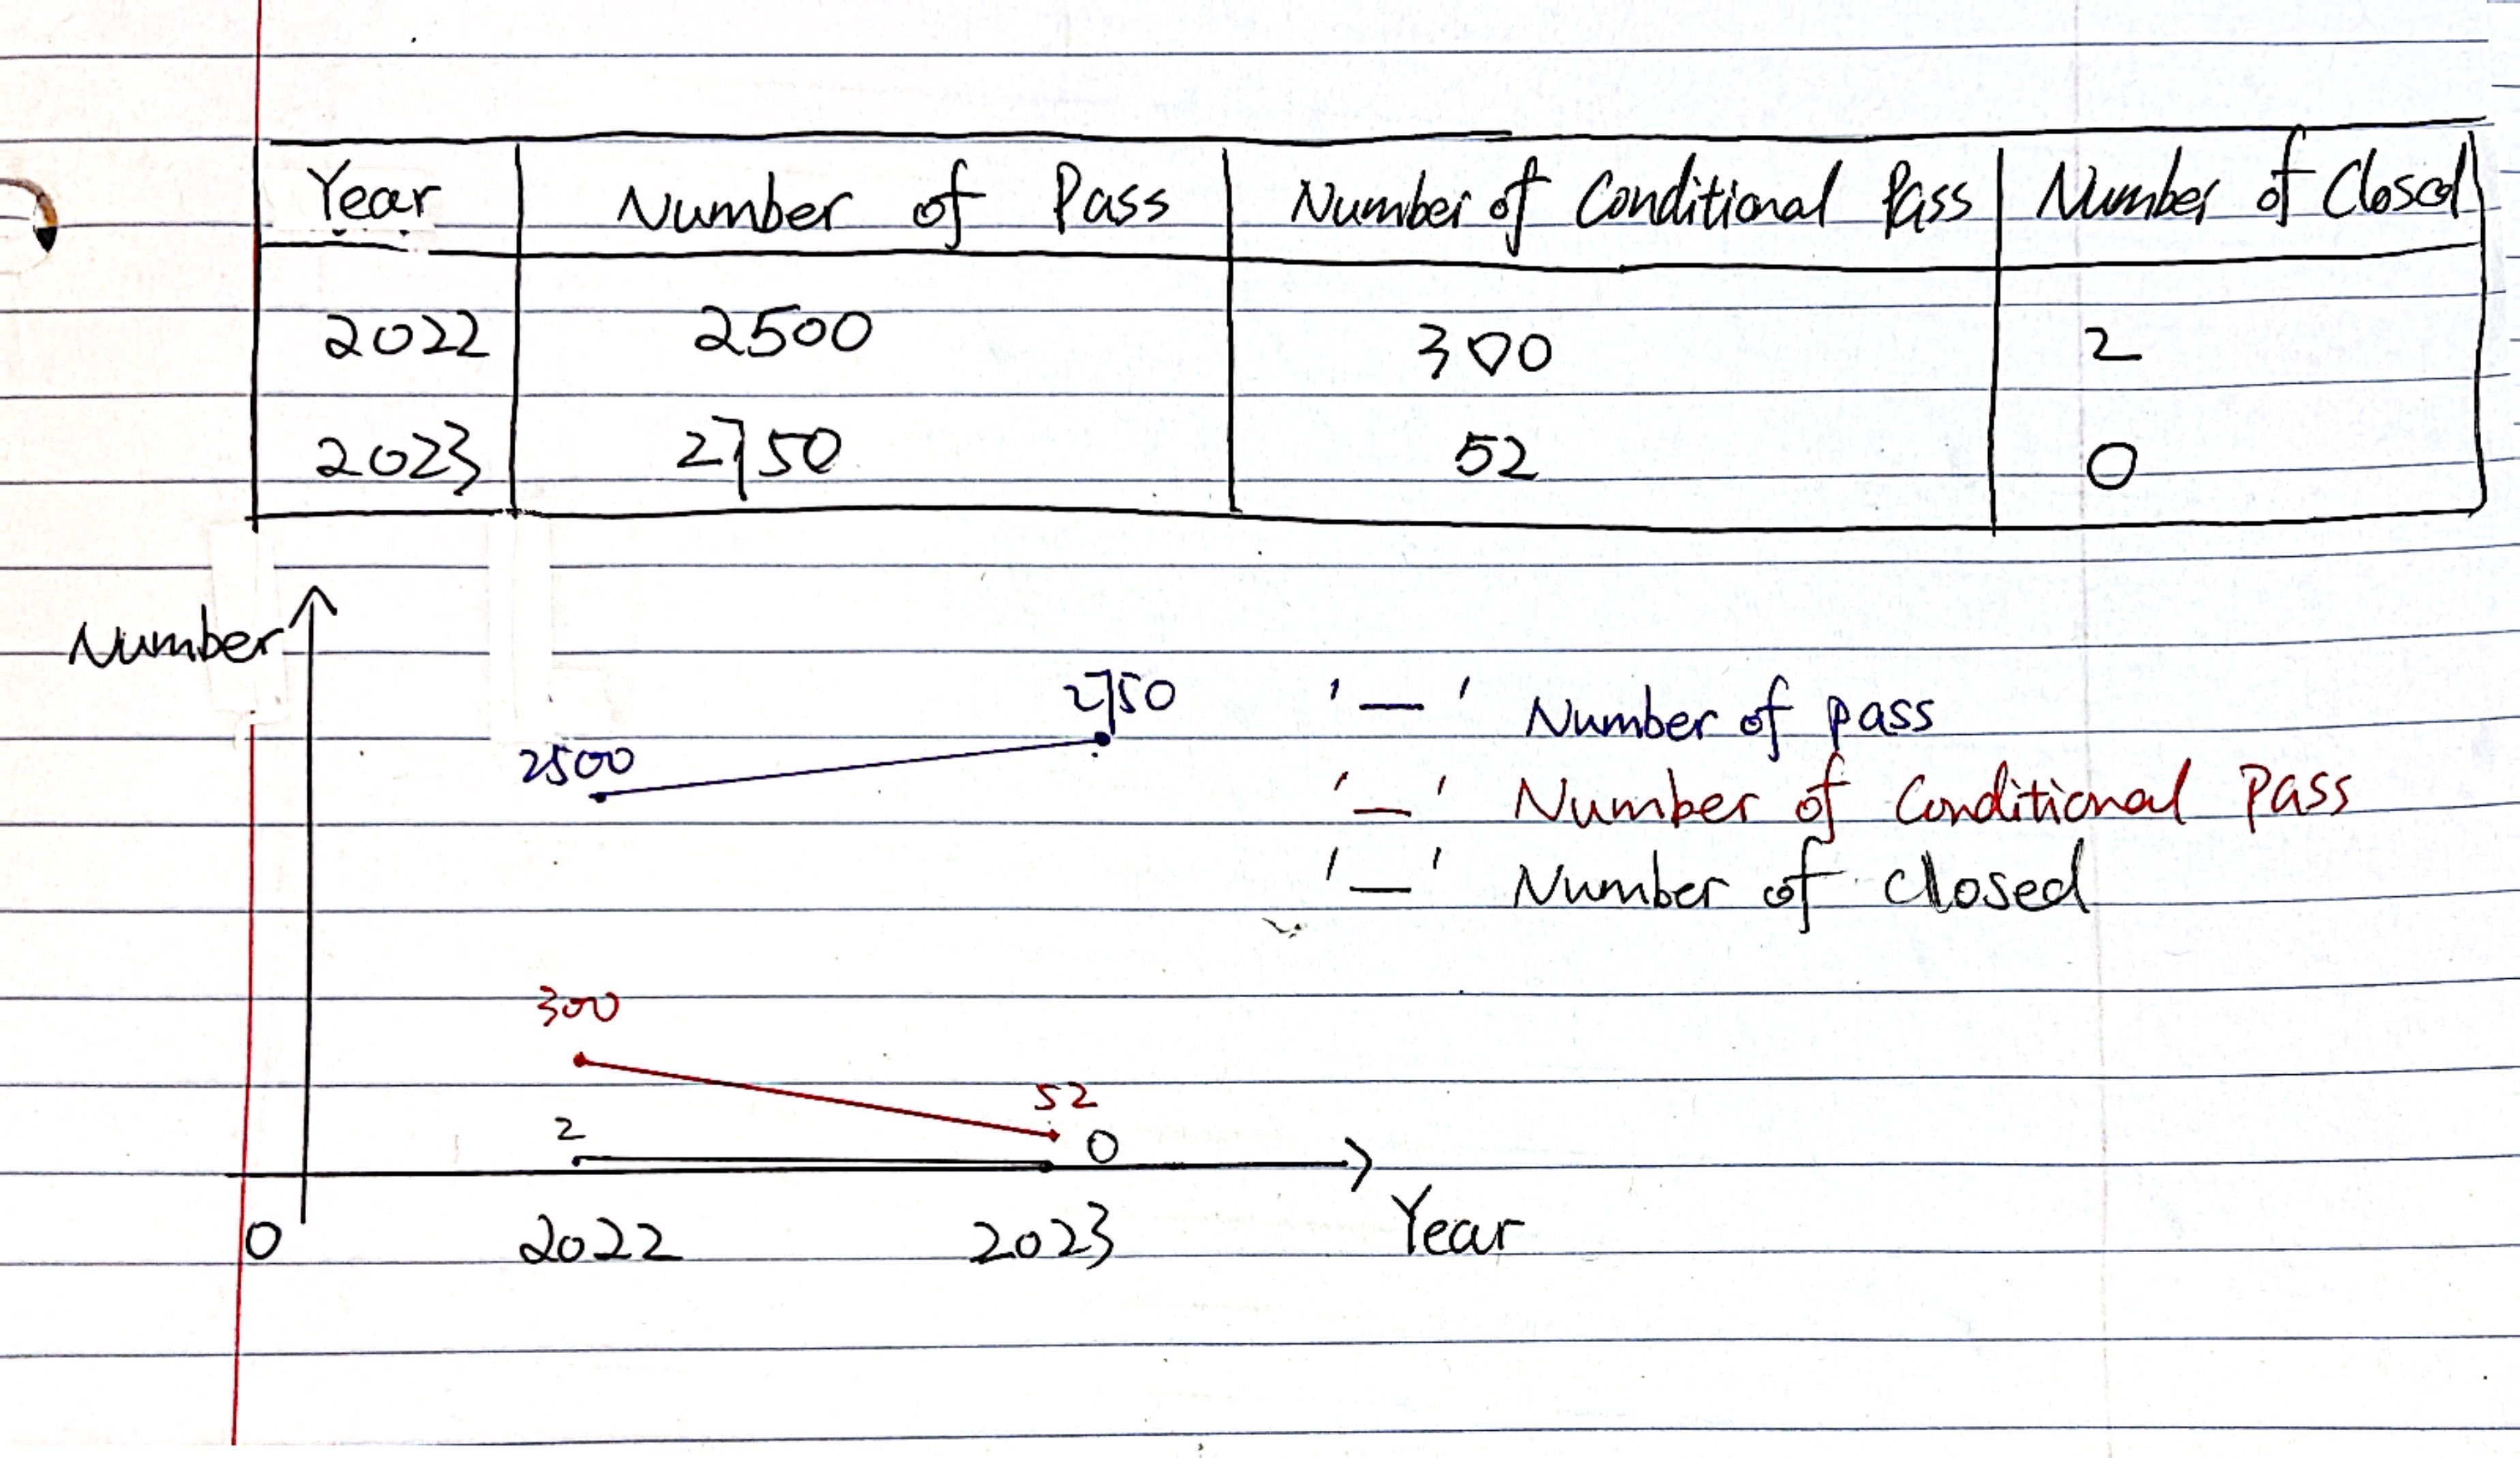 Year Number of Pass Number of Conditional Pass Number of Closed
2022 2500 300 2
2023 2750 52 0
Number
2750
2500
'—' Number of pass
'—' Number of Conditional Pass
'—' Number of Closed
300
52
2
0
0 2022 2023 Year